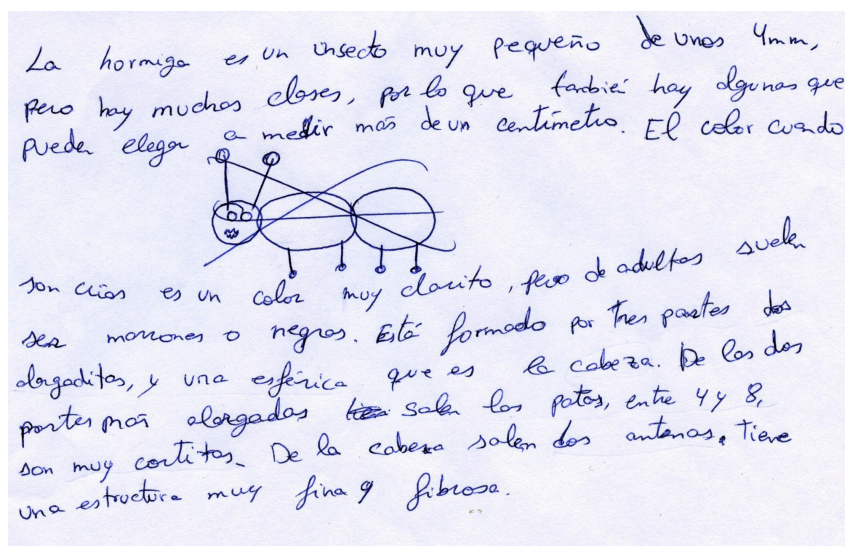 La hormiga es un insecto muy pequeño de unos 4mm,
pero hay muchas clases, por lo que también hay algunas que
pueden llegar a medir más de un centímetro. El color cuando
son crías es un color muy clarito, pero de adultas suelen
ser marrones o negras. Está formado por tres partes dos
alargaditas, y una esférica que es la cabeza. De las dos
partes más alargadas salen las patas, entre 4 y 8,
son muy cortitas. De la cabeza salen dos antenas. Tiene
una estructura muy fina y fibrosa.